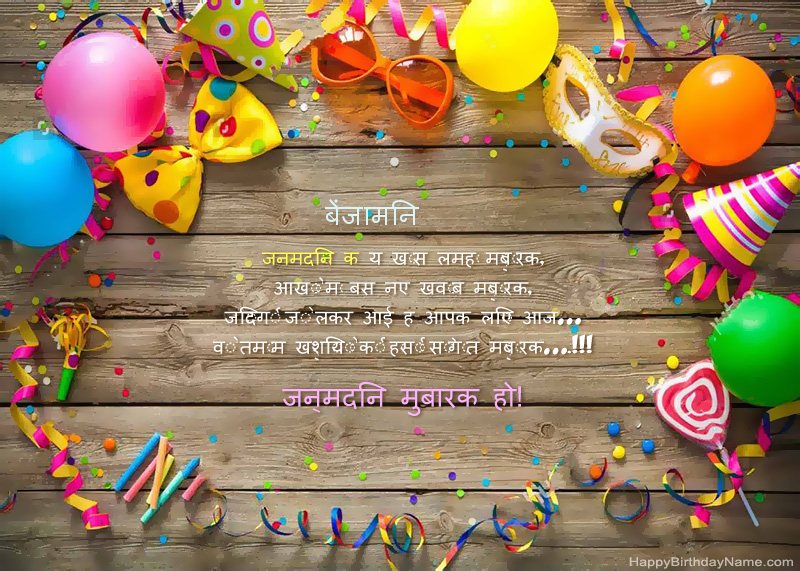 बेंजामिन
जन्मदिन के ये ख़ास लम्हें मुबारक,
आँखों में बसे नए ख्वाब मुबारक,
जिंदगी जो लेकर आई है आपके लिए आज...
वो तमाम खुशियों की हंसीं सौगात मुबारक...!!!
जन्मदिन मुबारक हो!
HappyBirthdayName.com